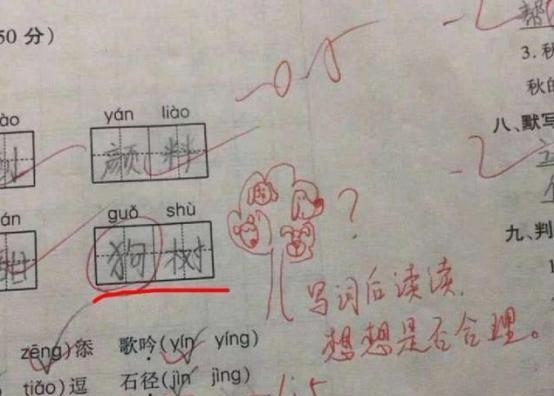 50 分）
ào
yán liào
颜料
án
guǒ shù
狗树
?
写词后读读，
想想是否合理。
zēng)添 歌吟(yín yíng)
tiǎo)逗 石径(jìn jìng)
-0.5
-1.5
3. 秋
秋的
八、默写
九、判